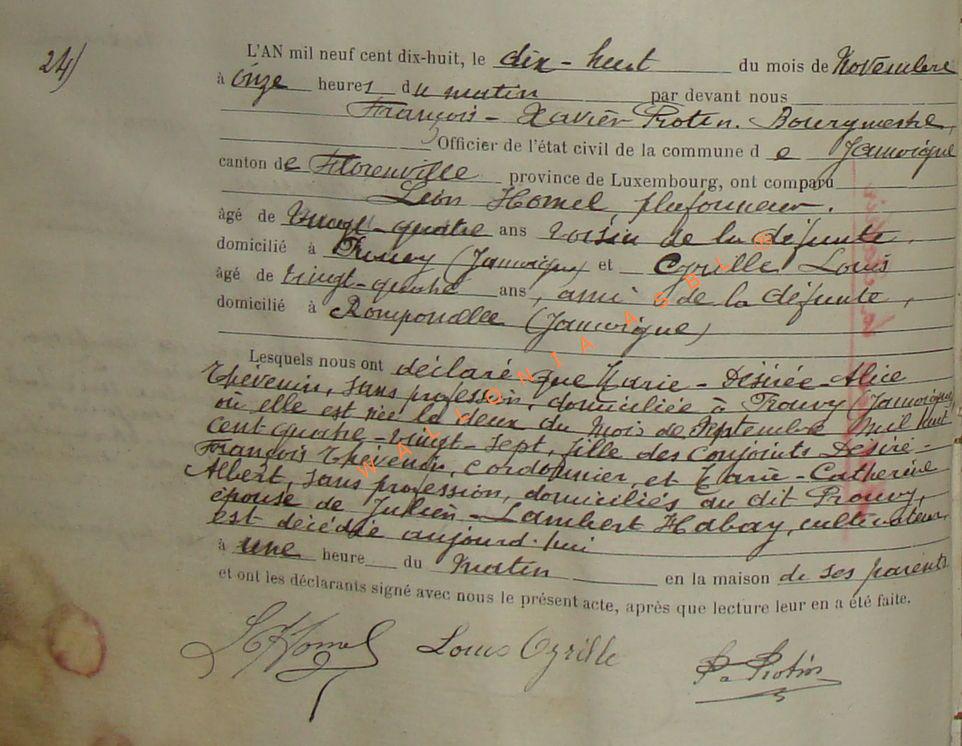 24)
L'AN mil neuf cent dix-huit, le dix-huit du mois de Novembre
à onze heures du matin par devant nous
François-Xavier Protin. Bourgmestre,
Officier de l'état civil de la commune de Jamoigne
canton de Florenville province de Luxembourg, ont comparu
Léon Homel plafonneur.
âgé de vingt-quatre ans voisin de la défunte.
domicilié à Prouvy (Jamoigne) et Cyrille Louis
âgé de vingt-quatre ans, ami de la défunte,
domicilié à Romponcelle (Jamoigne)
Lesquels nous ont déclaré que Marie-Désirée-Alice
Thévenin, sans profession, domiciliée à Prouvy (Jamoigne)
où elle est née le deux du mois de Septembre Mil huit
cent quatre-vingt-sept, fille des Conjoints Désiré-
François Thévenin, cordonnier, et Marie-Catherine
Albert, sans profession, domiciliés au dit Prouvy,
épouse de Jullien-Lambert Habay, cultivateur,
est décédée aujourd'hui
à une heure du matin en la maison de ses parents
et ont les déclarants signé avec nous le présent acte, après que lecture leur en a été faite.
L Homel Louis Cyrille Protin
WALLONIA ASBL ©